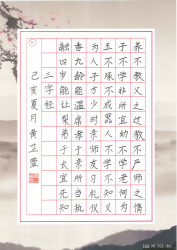 养不教父之过教不严师之惰
子不学非所宜幼不学老何为
玉不琢不成器人不学不知义
为人子方少时亲师友习礼仪
香九龄能温席孝于亲所当执
融四岁能让梨弟于长宜先知
三字经
己亥夏月黄